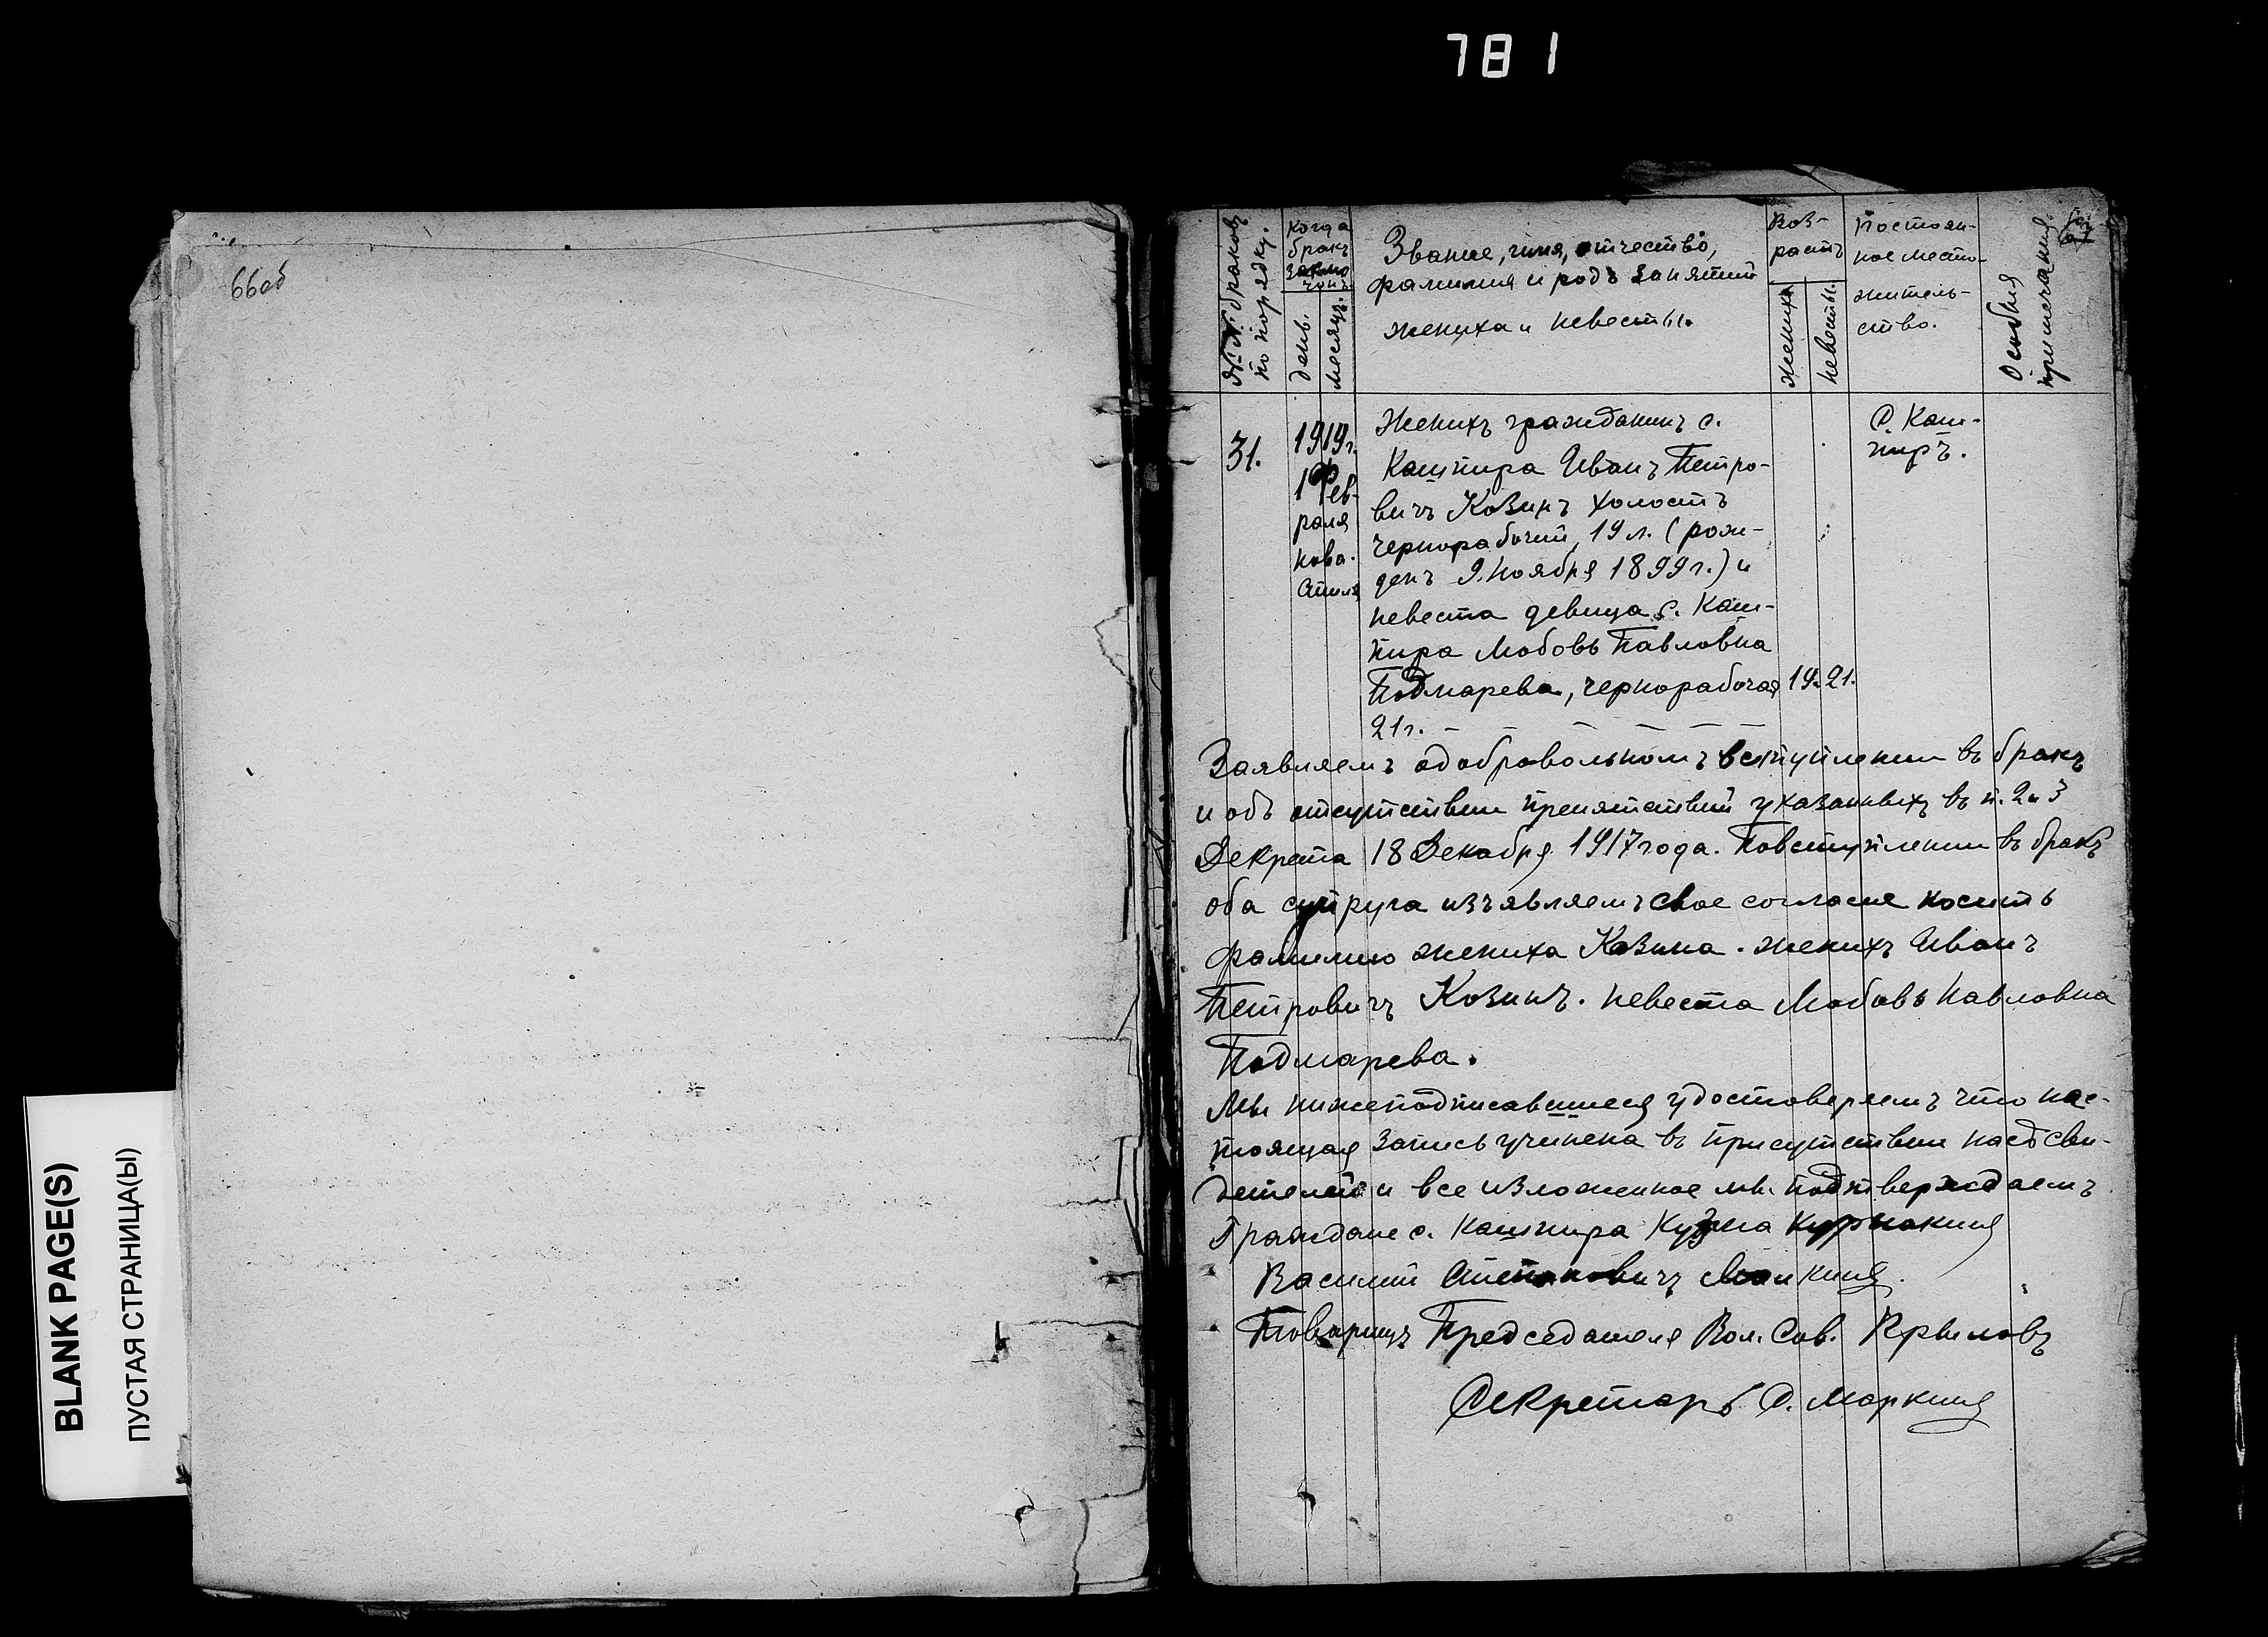 781
66об
BLANK PAGE(S)
ПУСТАЯ СТРАНИЦА(Ы)
№№ браковъ
по порядку.
Когда
бракъ
заклю
ченъ
день.
месяцъ.
Звание, имя, отчество,
фамилия и родъ занятий
жениха и невесты.
Воз-
растъ
жениха
невесты.
Постоян-
ное место-
житель-
ство.
Особыя
примечания
67
31.
1919г.
1 Фев-
раля
нова.
Стиля
Женихъ гражданинъ с.
Кашпира Иванъ Петро-
вичъ Козинъ холостъ
чернорабочий, 19 л. (рож-
денъ 9. Ноября 1899 г.) и
невеста девица с. Каш-
пира Любовь Павловна
Подмарева, чернорабочая
21 г.
19. 21.
С. Каш-
пиръ.
Заявляемъ одобровольномъ вступлении въ бракъ
и объ отсутствии препятствий указанныхъ въ п. 2 и 3
Декрета 18 Декабря 1917 года. Повступлении въ бракъ
оба супруга изъявляемъ свое согласие носить
фамилию жениха Козина. женихъ Иванъ
Петровичъ Козинъ. невеста Любовь Павловна
Подмарева.
Мы нижеподписавшиеся удостоверяемъ что нас-
тоящая запись учинена въ присутствии насъ сви-
детелей и все изложенное мы подтверждаемъ
Граждане с. Кашпира Кузма Курнакинъ
Василий Степановичъ
Товарищъ Председателя Вол. Сов. Крыловъ
Секретарь С. Маркинъ